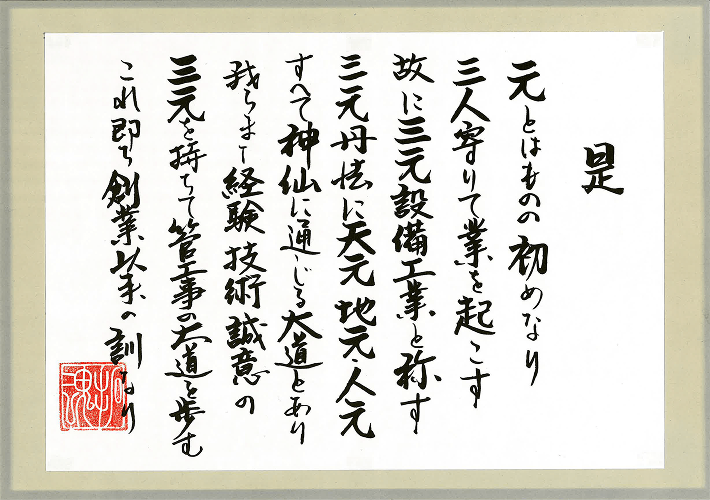 是
元とはものの初めなり
三人寄りて業を起こす
故に三元設備工業と称す
三元丹法に天元・地元・人元
すべて神仙に通じる大道とあり
我らまた経験技術誠意の
三元を持ちて管工事の大道を歩む
これ即ち創業以来の訓なり